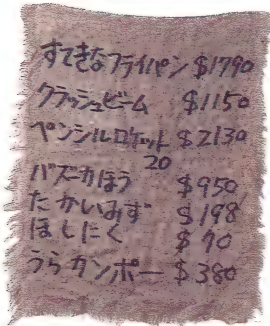 すてきなフライパン $1790
クラッシュビーム $1150
ペンシルロケット20 $2130
バズーカほう $950
たかいみず $198
ほしにく $70
うらカンポー $380